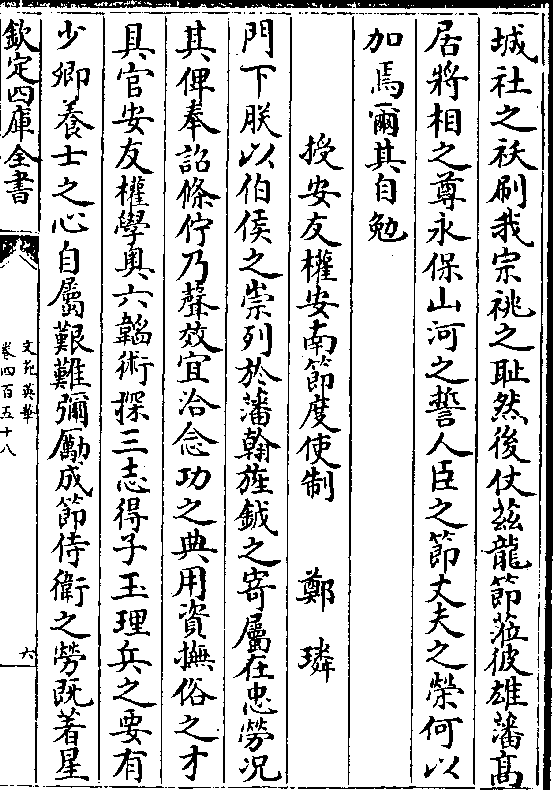 城社之祅刷我宗祧之耻然後仗兹龍節蒞彼雄藩髙
居將相之尊永保山河之誓人臣之節丈夫之榮何以
加焉爾其自勉
授安友權安南節度使制 鄭璘
門下朕以伯侯之崇列於藩翰旌鉞之寄屬在忠勞况
其俾奉詔條佇乃聲效宜洽念功之典用資撫俗之才
具官安友權學奥六韜術探三志得子玉理兵之要有
少卿養士之心自屬艱難彌勵成節侍衛之勞既著星
欽定四庫全書
文苑英華
卷四百五十八
六